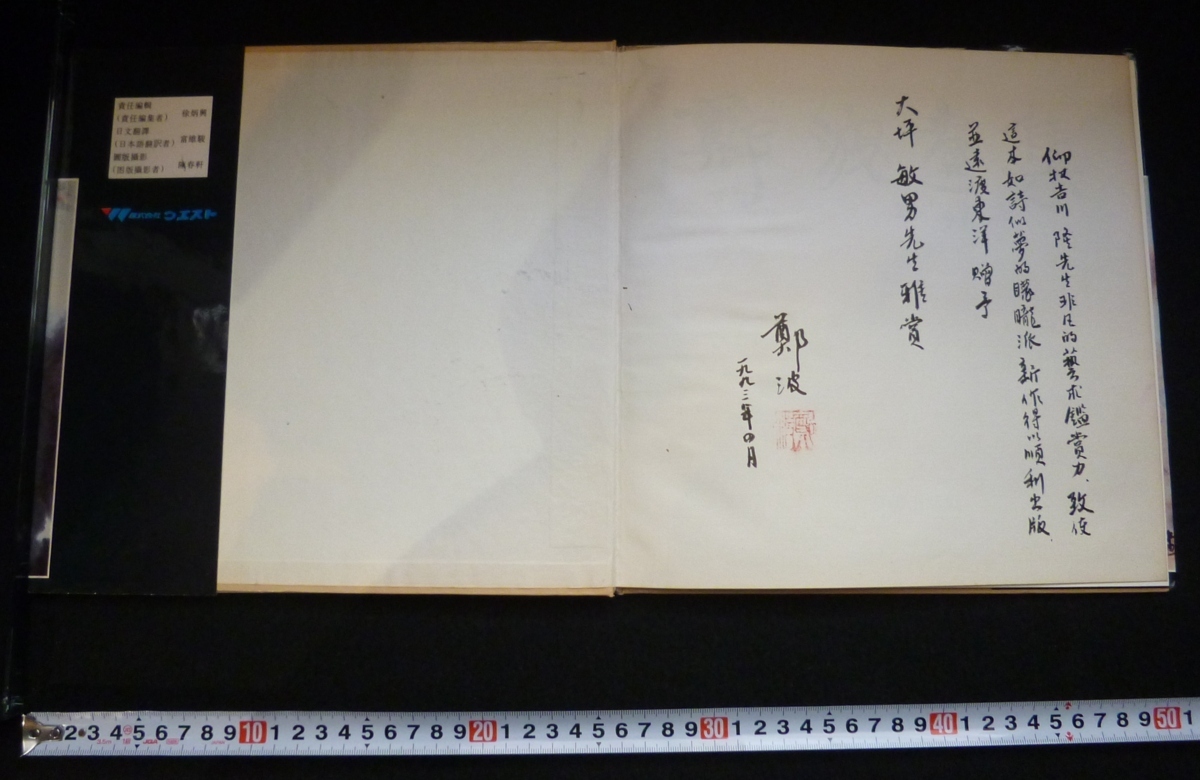 責任編輯
(責任編集者)
日文翻譯
(日本語翻訳者)
圖版攝影
(図版撮影者)
株式会社 ウエスト
仰杖吉川 隆先生非凡的藝术鑑賞力、致使
這本如詩似夢的矇矓派新作得以順利出版
並遠渡東洋贈予
大坪 敏男先生雅賞
鄭波
一九九二年四月
2 3 4 5 6 7 8 9 10 1 2 3 4 5 6 7 8 9 20 1 2 3 4 5 6 7 8 9 30 1 2 3 4 5 6 7 8 9 40 1 2 3 4 5 6 7 8 9 50 1